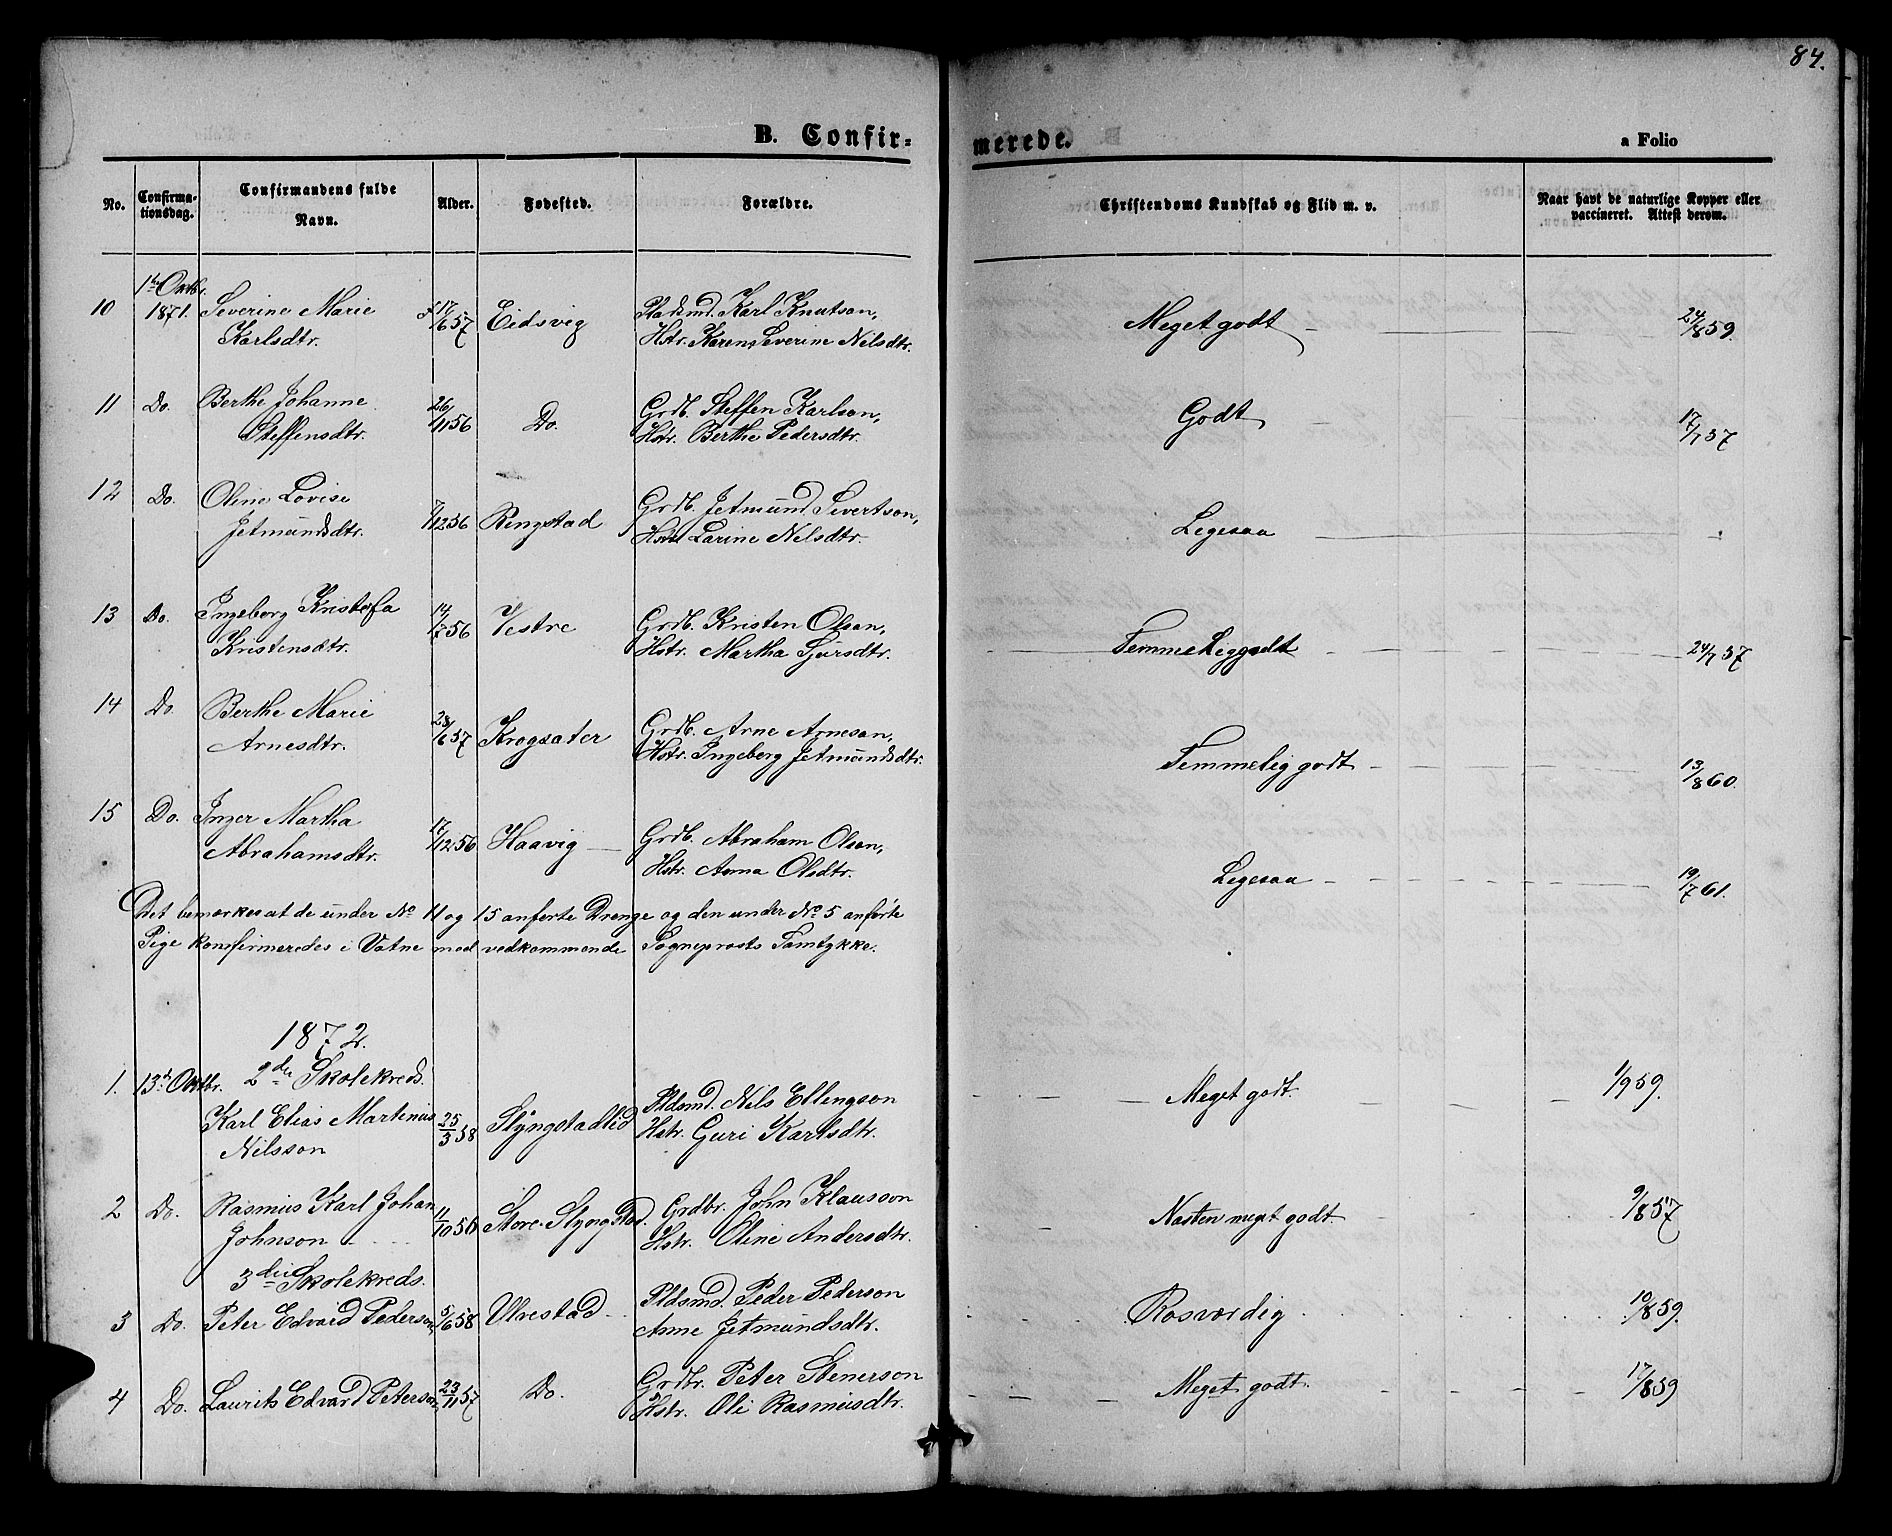 84.
B. Confir-
merede.
a Folio
No.
Confirma-
tionsdag.
Confirmandens fulde
Navn.
Alder.
Fødested.
Forældre.
Christendoms Kundskab og Flid m. v.
Naar havt de naturlige Kopper eller
vaccineret. Attest derom.
1ste Oktbr.
10 1871. Severine Marie 17/6 57 Eidsvig Pladsmd. Karl Knutson, Meget godt 24/8 59.
Karlsdtr. Hstr. Karen Severine Nilsdtr.
11 Do. Berthe Johanne 26/11 56 Do. Grdb. Steffen Karlson, Godt 17/7 57
Steffensdtr. Hstr. Berthe Pedersdtr.
12 Do. Oline Lovise 7/12 56 Ringstad Grdb. Jetmund Sivertson, Ligesaa
Jetmundsdtr. Hstr. Larine Nilsdtr.
13 Do. Ingeborg Kristofa 14/7 56 Vestre Grdb. Kristen Olson, Temmelig godt 24/7 57
Kristensdtr. Hstr. Martha Sjursdtr.
14 Do. Berthe Marie 28/6 57 Krogsæter Grdb. Arne Arneson, Temmelig godt 13/8 60.
Arnesdtr. Hstr. Ingeborg Jetmundsdtr.
15 Do. Inger Martha 17/12 56 Haavig Grdb. Abraham Olson, Ligesaa 19/7 61.
Abrahamsdtr. Hstr. Anna Olsdtr.
Det bemærkes at de under No 11 og 15 anførte Drenge og den under No 5 anførte
Pige konfirmeredes i Vatne med vedkommende Sogneprests Samtykke.
1872.
1. 13de Oktbr. 2den Skolekreds.
Karl Elias Martinus 25/3 58 Slyngstadlid Pldsmd. Nils Ellengson Meget godt. 1/9 59.
Nilsson Hstr. Guri Karlsdtr.
2 Do. Rasmus Karl Johan 11/10 56 Store-Slyngstad. Grdbr. John Klausson Næsten meget godt. 9/8 57
Johnson Hstr. Oline Andersdtr.
3die Skolekreds.
3 Do. Peter Edvard Pederson 5/6 58 Ulvestad Pldsmd. Peder Pederson Rosværdig 10/8 59.
Anne Jetmundsdtr.
4 Do. Laurits Edvard Peterson 23/11 57 Do. Grdbr. Peter Stenerson Meget godt. 17/8 59
Hstr. Oli Rasmusdtr.